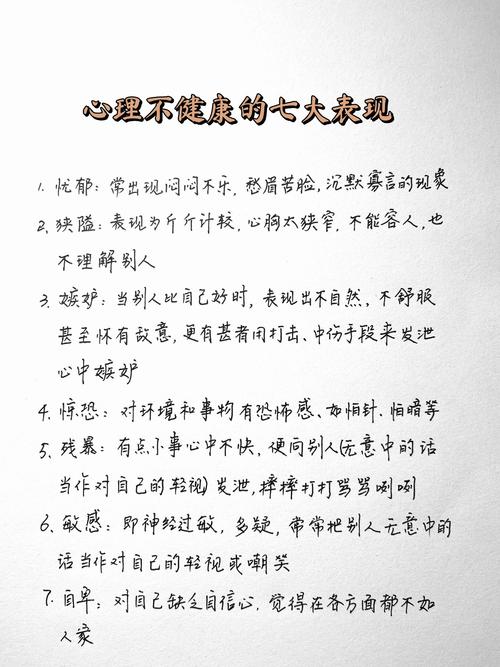 心理不健康的七大表现
1. 忧郁：常出现闷闷不乐，愁眉苦脸，沉默寡言的现象
2. 狭隘：表现为斤斤计较，心胸太狭窄，不能容人，也
不理解别人
3. 嫉妒：当别人比自己好时，表现出不自然，不舒服
甚至怀有敌意，更有甚者用打击、中伤手段来发泄
心中嫉妒
4. 惊恐：对环境和事物有恐怖感、如怕针、怕暗等
5. 残暴：有点小事心中不快，便向别人(无意中的话
当作对自己的轻视)发泄，摔摔打打骂骂咧咧
6. 敏感：即神经过敏，多疑，常常把别人无意中的
话当作对自己的轻视或嘲笑
7. 自卑：对自己缺乏自信心，觉得在各方面都不如
人家